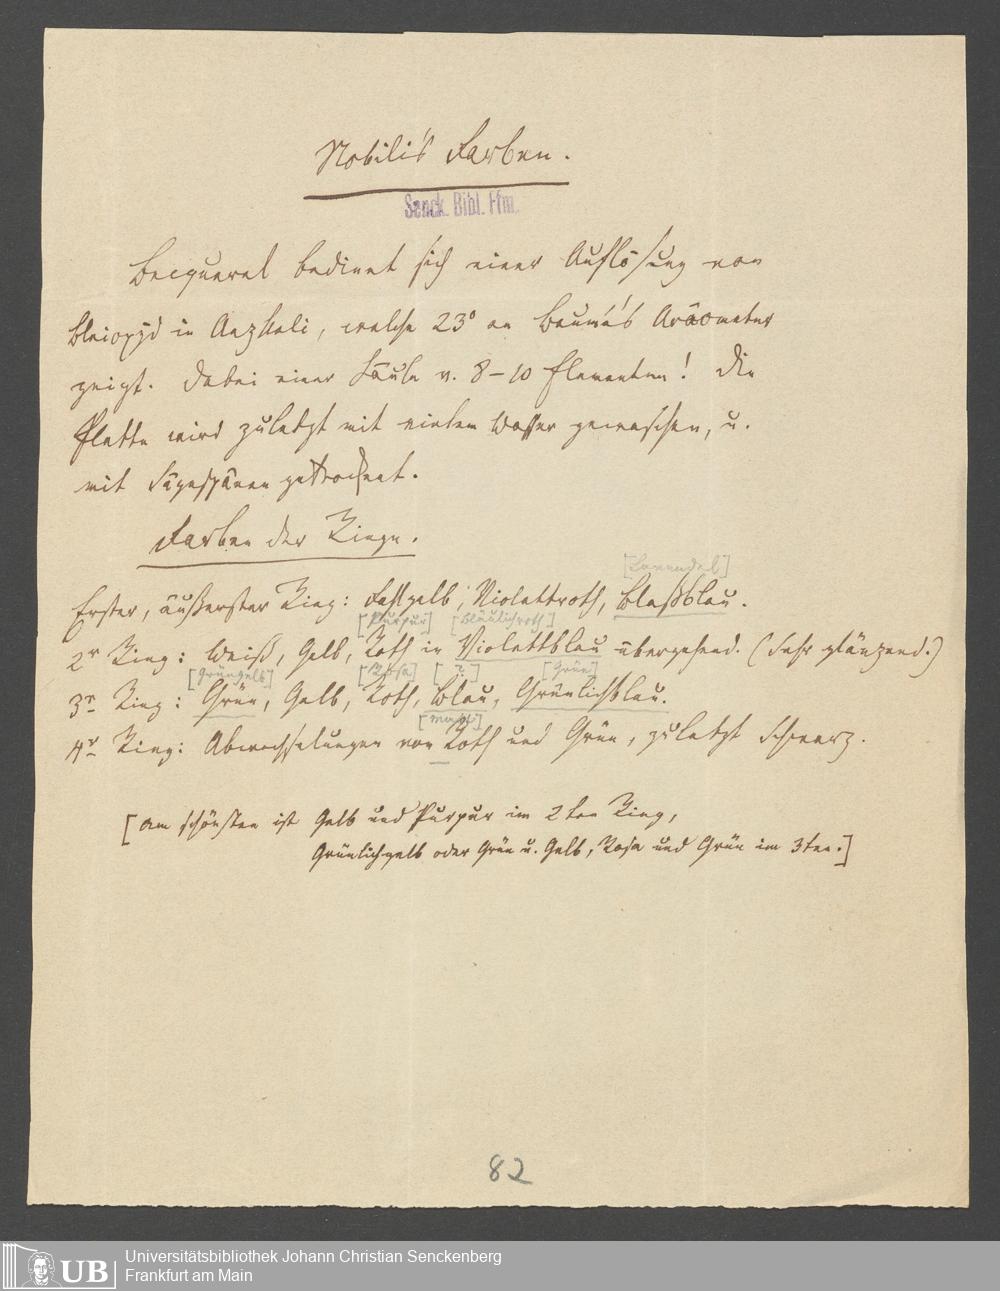 Nobili's Farben.
Senck. Bibl. Ffm.
Becquerel bedient sich einer Auflösung von
Bleioxyd in Aezkali, welche 23° an Beaumé's Aräometer
zeigt. Dabei einer Säule v. 8–10 Elementen! Die
Platte wird zuletzt mit vielem Wasser gewaschen, u.
mit Sägespänen getrocknet.
Farben der Ringe.
[Lavendel]
Erster, äußerster Ring: Fahlgelb, Violettroth, Blaßblau.
[Purpur] [bläulichroth]
2r Ring: Weiß, Gelb, Roth in Violettblau übergehend. (Sehr glänzend.)
[Grüngelb] [Rosa] [?] [Grün]
3r Ring: Grün, Gelb, Roth, Blau, Grünlichblau.
[matt]
4r Ring: Abwechselungen von Roth und Grün, zuletzt schwarz.
[Am schönsten ist Gelb und Purpur im 2ten Ring,
Grünlichgelb oder Grün u. Gelb, Rosa und Grün im 3ten.]
82
UB
Universitätsbibliothek Johann Christian Senckenberg
Frankfurt am Main